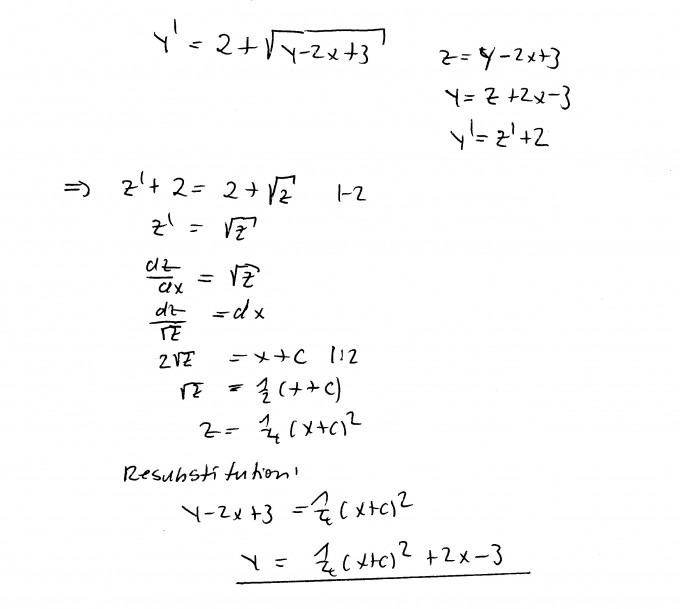 y' = 2+√(y-2x+3)
z= y-2x+3
y= z+2x-3
y'= z'+2
=> z'+ 2= 2+√z |-2
z' = √z
dz/dx = √z
dz/√z = dx
2√z = x+c |:2
√z = 1/2 (x+c)
z= 1/4 (x+c)²
Resubstitution:
y-2x+3 = 1/4 (x+c)²
y = 1/4 (x+c)² +2x-3